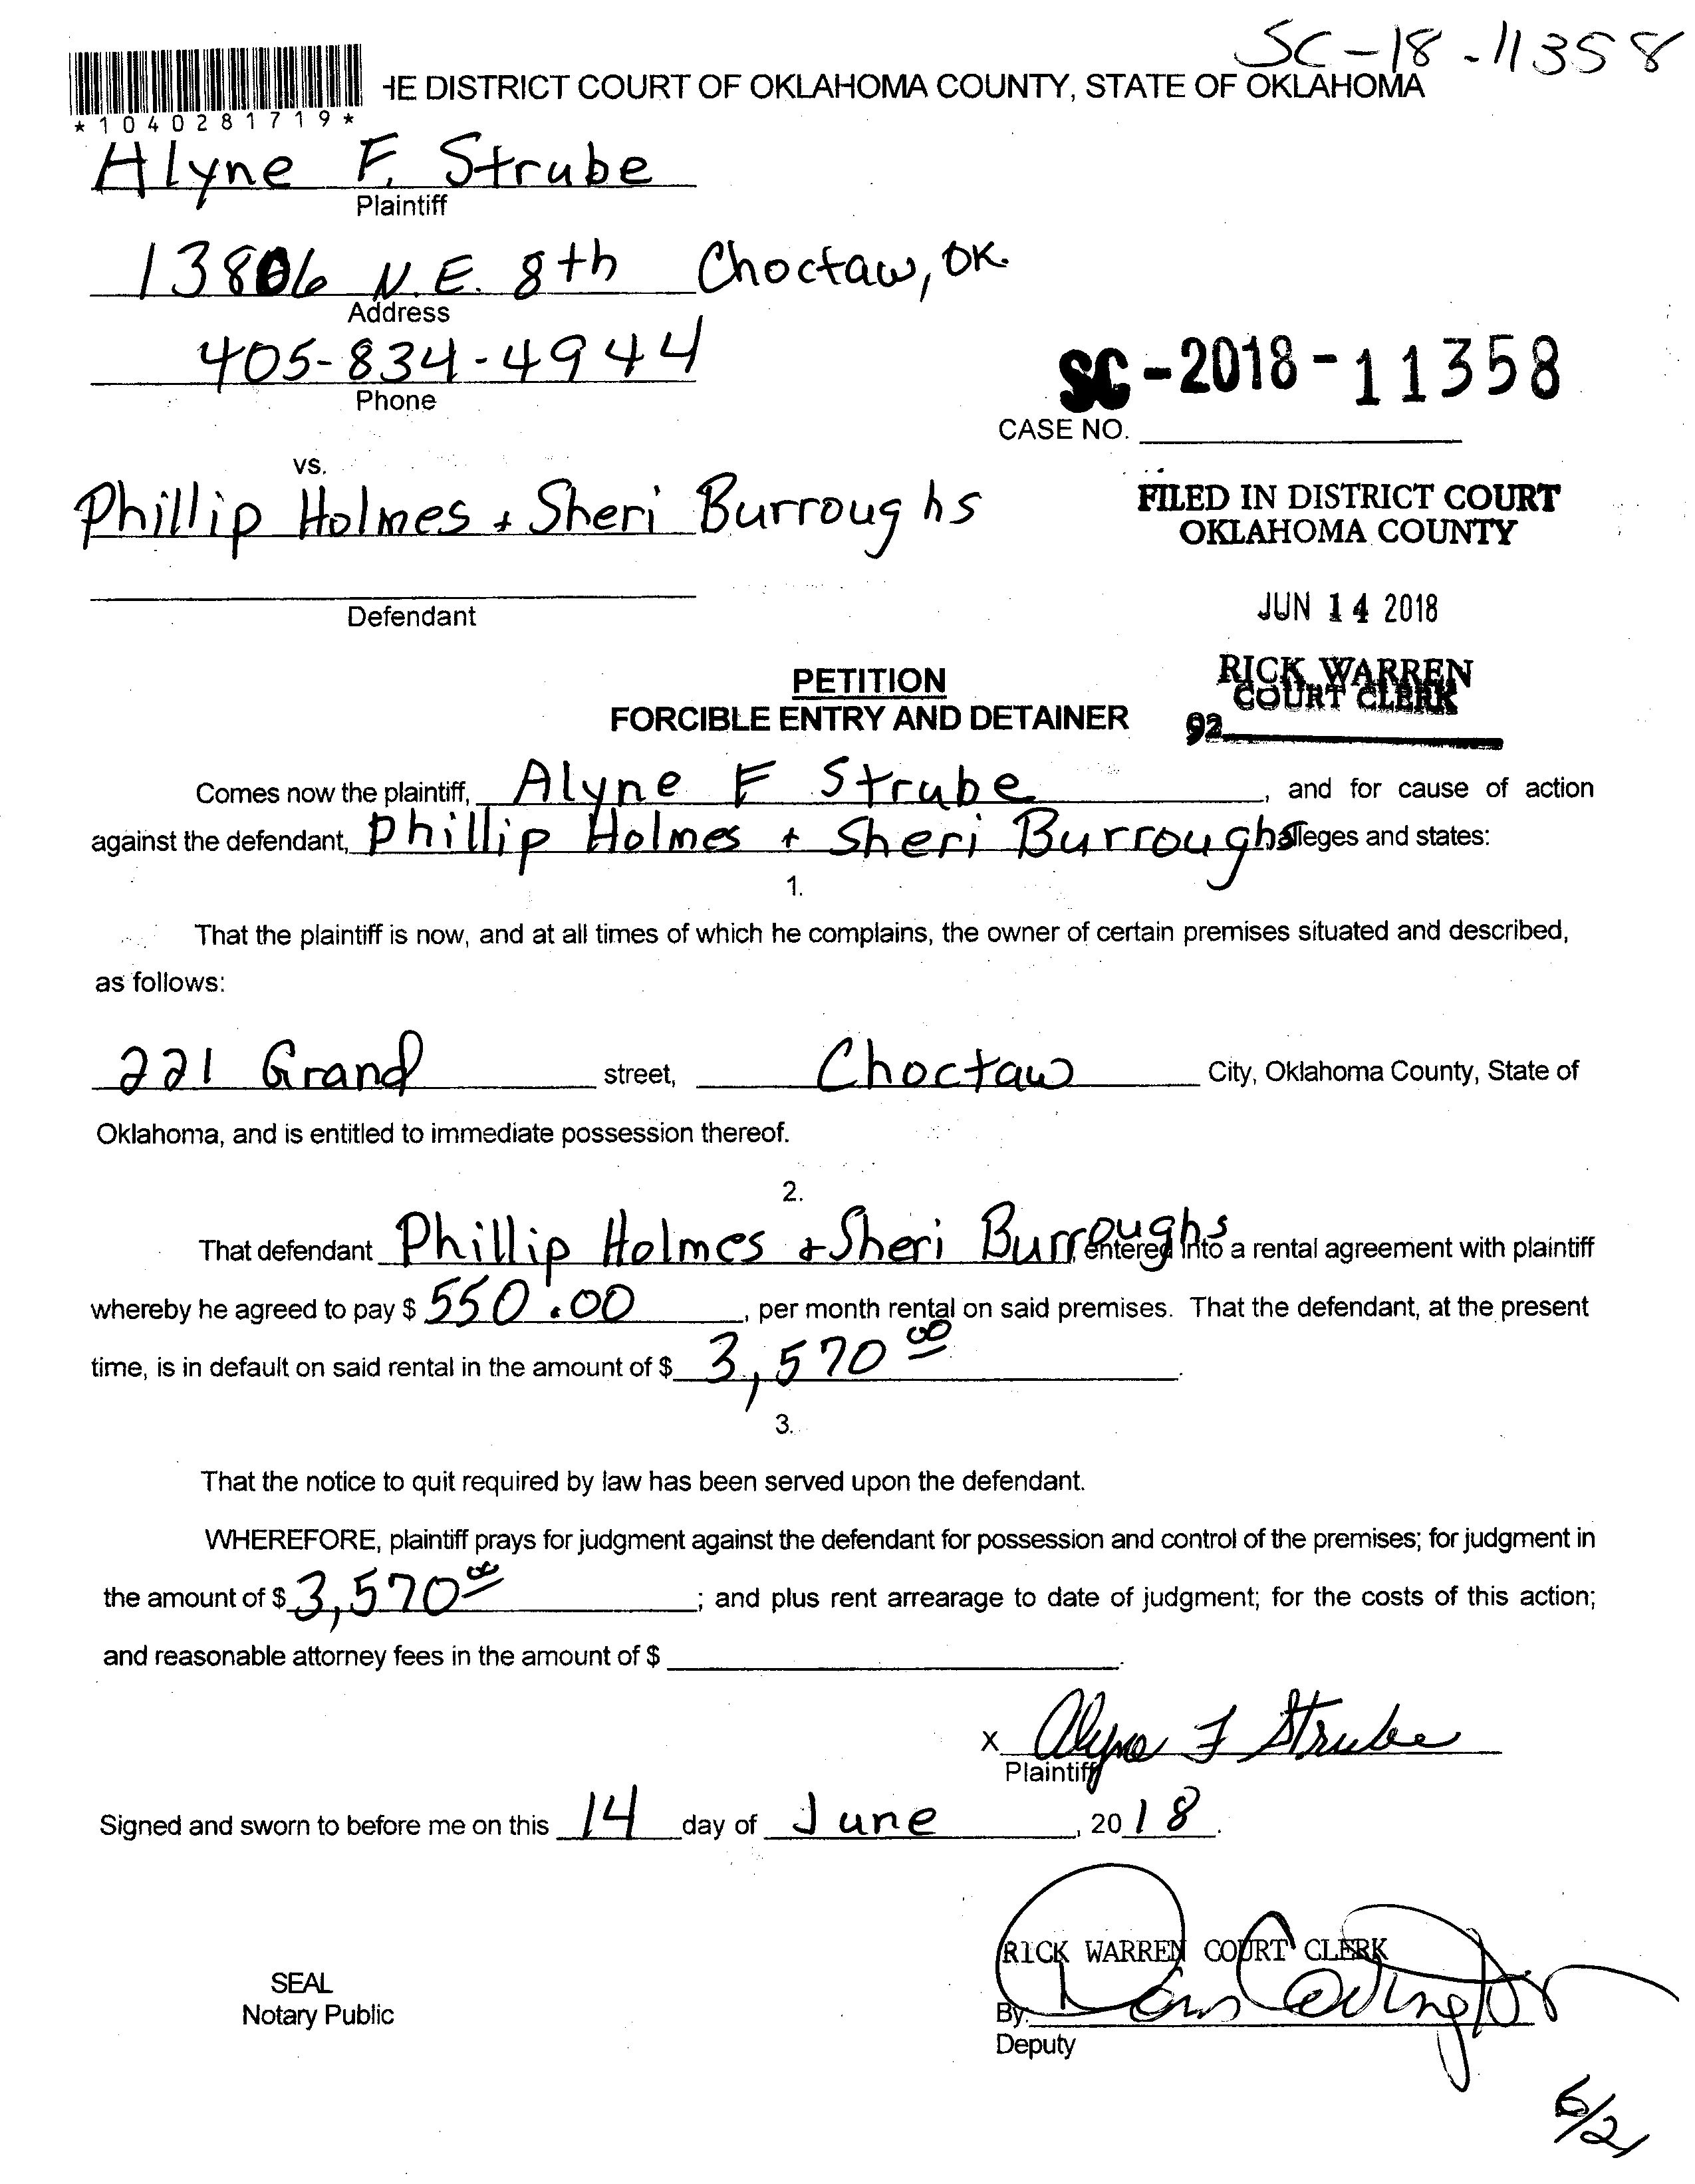 SC-18-11358
HE DISTRICT COURT OF OKLAHOMA COUNTY, STATE OF OKLAHOMA
*1040281719*
Alyne F. Strube
Plaintiff
13806 N.E. 8th Choctaw, OK.
Address
405-834-4944
Phone
SC-2018-11358
CASE NO.
vs.
Phillip Holmes + Sheri Burroughs
Defendant
FILED IN DISTRICT COURT
OKLAHOMA COUNTY
JUN 14 2018
RICK WARREN
COURT CLERK
92
PETITION
FORCIBLE ENTRY AND DETAINER
Comes now the plaintiff, Alyne F Strube, and for cause of action
against the defendant, Phillip Holmes + Sheri Burroughs alleges and states:
1.
That the plaintiff is now, and at all times of which he complains, the owner of certain premises situated and described,
as follows:
221 Grand street, Choctaw City, Oklahoma County, State of
Oklahoma, and is entitled to immediate possession thereof.
2.
That defendant Phillip Holmes + Sheri Burroughs entered into a rental agreement with plaintiff
whereby he agreed to pay $ 550.00, per month rental on said premises. That the defendant, at the present
time, is in default on said rental in the amount of $ 3,570 00.
3.
That the notice to quit required by law has been served upon the defendant.
WHEREFORE, plaintiff prays for judgment against the defendant for possession and control of the premises; for judgment in
the amount of $ 3,570 00; and plus rent arrearage to date of judgment; for the costs of this action;
and reasonable attorney fees in the amount of $
X Alyne F Strube
Plaintiff
Signed and sworn to before me on this 14 day of June, 20 18.
RICK WARREN COURT CLERK
SEAL
Notary Public
By:
Deputy
6/21